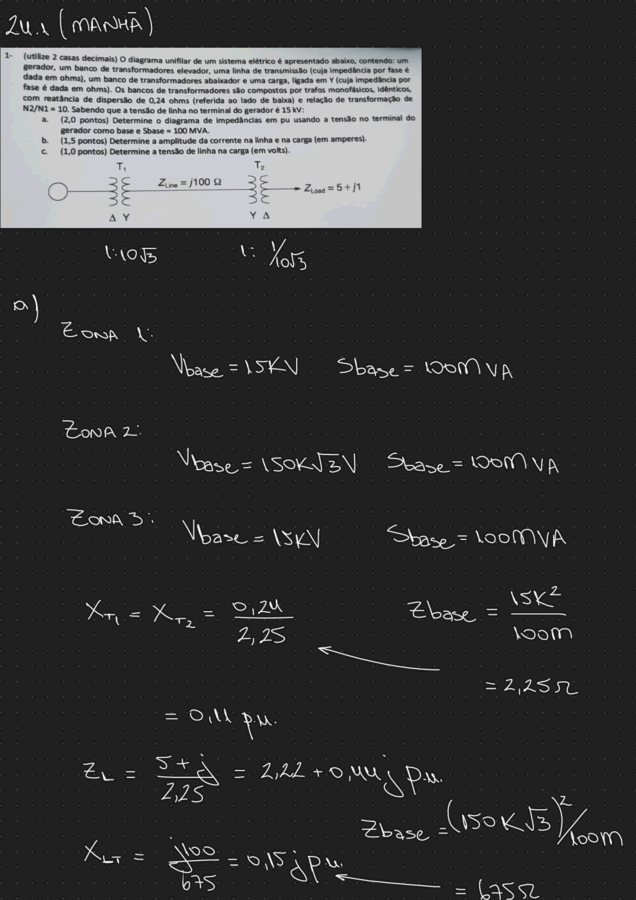 24.1 (MANHÃ)
1- (utilize 2 casas decimais) O diagrama unifilar de um sistema elétrico é apresentado abaixo, contendo: um
gerador, um banco de transformadores elevador, uma linha de transmissão (cuja impedância por fase é
dada em ohms), um banco de transformadores abaixador e uma carga, ligada em Y (cuja impedância por
fase é dada em ohms). Os bancos de transformadores são compostos por trafos monofásicos, idênticos,
com reatância de dispersão de 0,24 ohms (referida ao lado de baixa) e relação de transformação de
N2/N1 = 10. Sabendo que a tensão de linha no terminal do gerador é 15 kV:
a. (2,0 pontos) Determine o diagrama de impedâncias em pu usando a tensão no terminal do
gerador como base e Sbase = 100 MVA.
b. (1,5 pontos) Determine a amplitude da corrente na linha e na carga (em amperes).
c. (1,0 pontos) Determine a tensão de linha na carga (em volts).
T₁ T₂
Z_Line = j100 Ω Z_Load = 5 + j1
Δ Y Y Δ
1:10√3 1: 1/10√3
a)
ZONA 1:
Vbase = 15KV Sbase = 100MVA
ZONA 2:
Vbase = 150K√3V Sbase = 100MVA
ZONA 3: Vbase = 15KV Sbase = 100MVA
X_T₁ = X_T₂ = 0,24/2,25 Zbase = 15K²/100m
= 2,25Ω
= 0,11 p.u.
Z_L = 5+j/2,25 = 2,22 + 0,44j p.u.
Zbase = (150K√3)²/100m
X_LT = j100/675 = 0,15j p.u.
= 675Ω